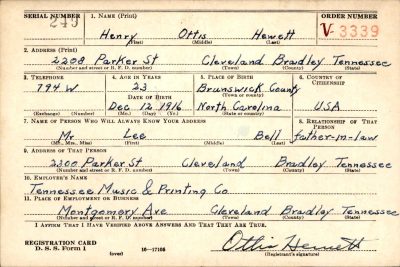 SERIAL NUMBER 1. NAME (Print) ORDER NUMBER
243 Henry Ottis Hewett V-3339
(First) (Middle) (Last)
2. ADDRESS (Print)
2208 Parker St Cleveland Bradley Tennessee
(Number and street or R. F. D. number) (Town) (County) (State)
3. TELEPHONE 4. AGE IN YEARS 5. PLACE OF BIRTH 6. COUNTRY OF CITIZENSHIP
794 W 23 Brunswick County
DATE OF BIRTH (Town or county)
Dec. 12 1916 North Carolina USA
(Mo.) (Day) (Yr.) (State or country)
7. NAME OF PERSON WHO WILL ALWAYS KNOW YOUR ADDRESS 8. RELATIONSHIP OF THAT PERSON
Mr Lee Bell father-in-law
(Mr., Mrs., Miss) (First) (Middle) (Last)
9. ADDRESS OF THAT PERSON
2300 Parker St Cleveland Bradley Tennessee
(Number and street or R. F. D. number) (Town) (County) (State)
10. EMPLOYER'S NAME
Tennessee Music & Printing Co
11. PLACE OF EMPLOYMENT OR BUSINESS
Montgomory Ave Cleveland Bradley Tennessee
(Number and street or R. F. D. number) (Town) (County) (State)
I AFFIRM THAT I HAVE VERIFIED ABOVE ANSWERS AND THAT THEY ARE TRUE.
REGISTRATION CARD
D. S. S. Form 1 (over) 16-17105 Ottis Hewett
(Registrant's signature)